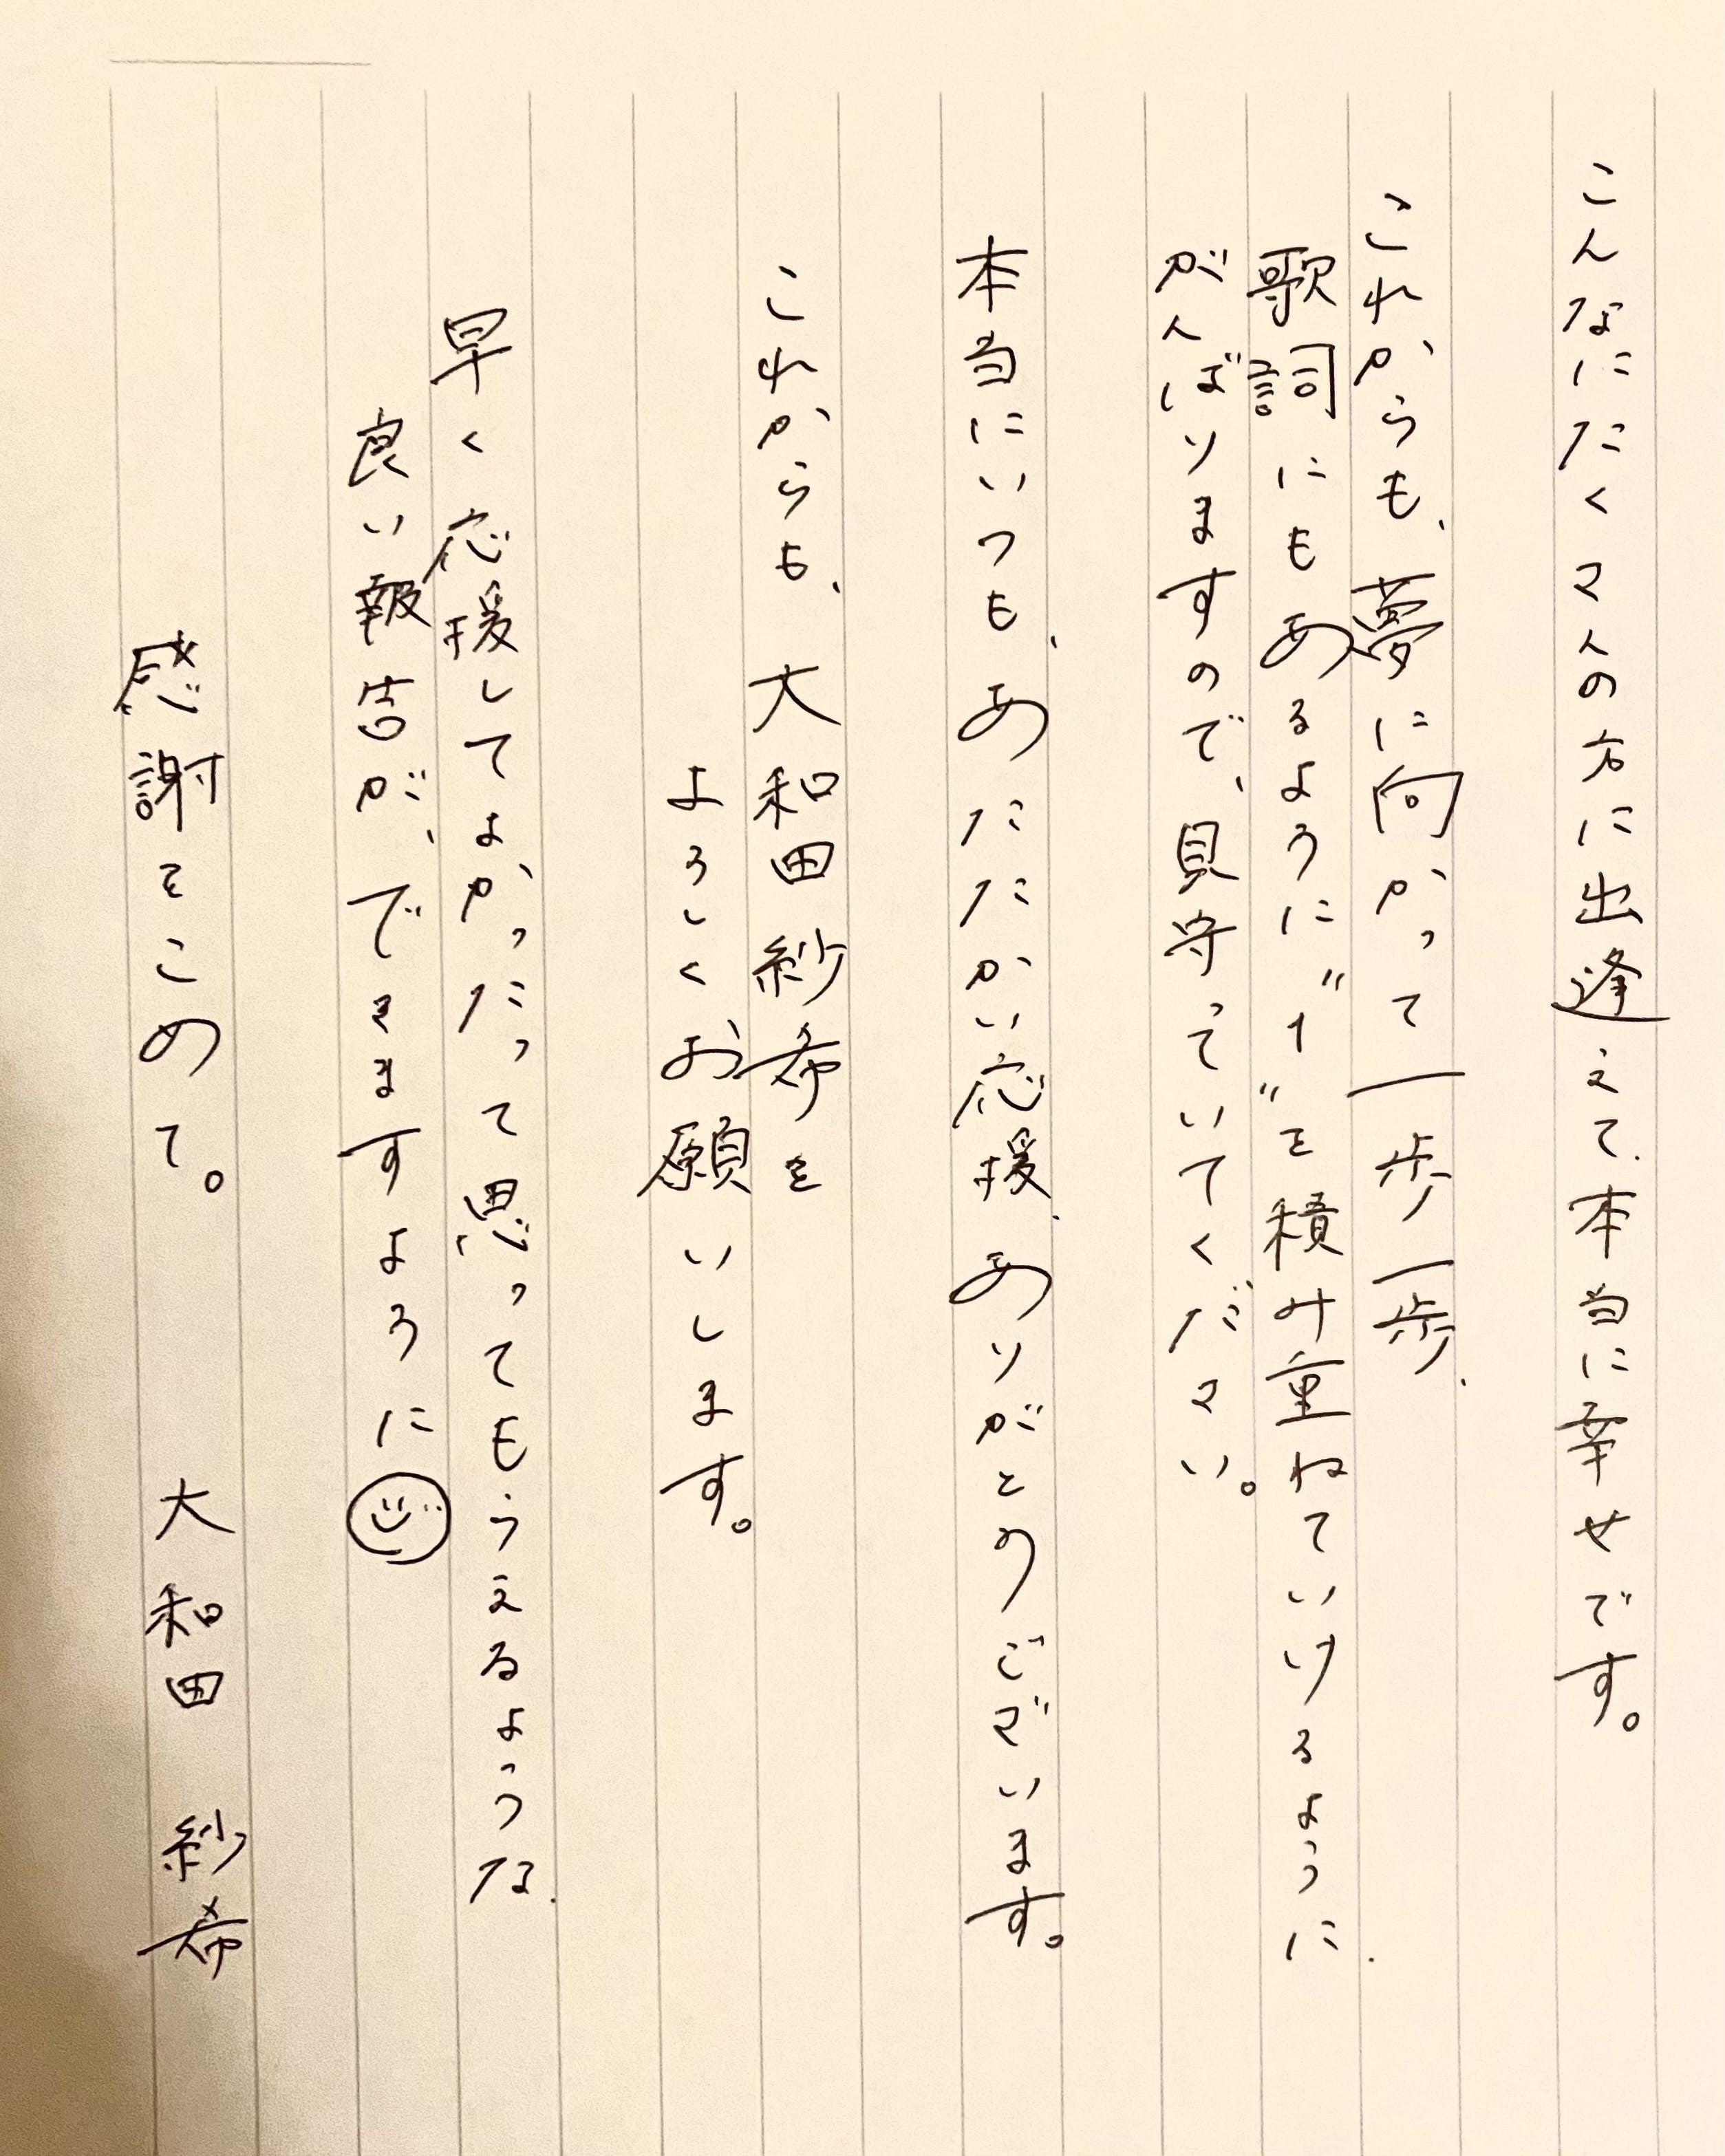 こんなにたくさんの方に出逢えて、本当に幸せです。
これからも、夢に向かって一歩一歩、
歌詞にもあるように"1"を積み重ねていけるように、
がんばりますので、見守っていてください。
本当にいつも、あたたかい応援、ありがとうございます。
これからも、大和田紗希を
よろしくお願いします。
早く応援してよかったって思ってもらうえるような、
良い報告が、できますように
感謝をこめて。 大和田 紗希